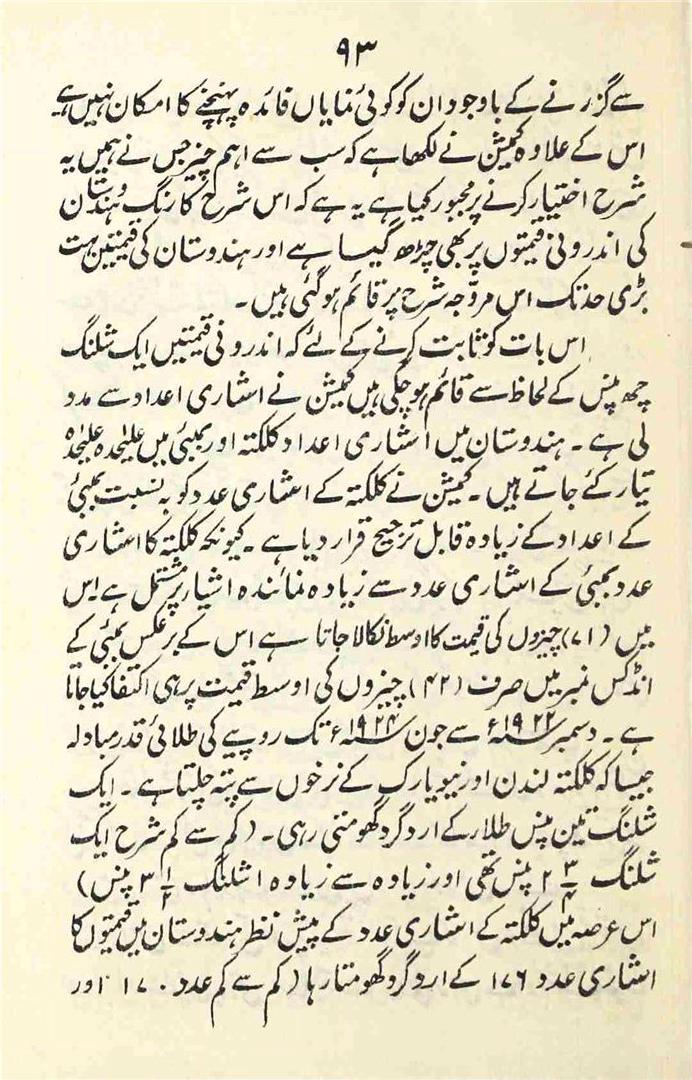 ۹۳
سے گزرنے کے باوجود ان کو کوئی نمایاں فائدہ پہنچنے کا امکان نہیں ہے
اس کے علاوہ کمیشن نے لکھا ہے کہ سب سے اہم چیز جس نے ہمیں یہ
شرح اختیار کرنے پر مجبور کیا ہے یہ ہے کہ اس شرح کا رنگ ہندوستان
کی اندرونی قیمتوں پر بھی چڑھ گیا ہے اور ہندوستان کی قیمتیں بہت
بڑی حد تک اس مروّجہ شرح پر قائم ہو گئی ہیں۔
اس بات کو ثابت کرنے کے لئے کہ اندرونی قیمتیں ایک شلنگ
چھ پنس کے لحاظ سے قائم ہو چکی ہیں کمیشن نے اشاری اعداد سے مدد
لی ہے۔ ہندوستان میں اشاری اعداد کلکتہ اور بمبئی میں علیٰحدہ علیٰحدہ
تیار کئے جاتے ہیں۔ کمیشن نے کلکتہ کے اشاری عدد کو بہ نسبت بمبئی
کے اعداد کے زیادہ قابل ترجیح قرار دیا ہے۔ کیونکہ کلکتہ کا اشاری
عدد بمبئی کے اشاری عدد سے زیادہ نمائندہ اشیار پر مشتمل ہے اس
میں (۷۱) چیزوں کی قیمت کا اوسط نکالا جاتا ہے اس کے برعکس بمبئی کے
انڈکس نمبر میں صرف (۴۲) چیزوں کی اوسط قیمت پر ہی اکتفا کیا جاتا
ہے۔ دسمبر ۱۹۲۲ء سے جون ۱۹۲۴ء تک روپیے کی طلائی قدر مبادلہ
جیسا کہ کلکتہ لندن اور نیویارک کے نرخوں سے پتہ چلتا ہے۔ ایک
شلنگ تین پنس طلار کے ارد گرد گھومتی رہی۔ (کم سے کم شرح ایک
شلنگ ۲ ۳/۴ پنس تھی اور زیادہ سے زیادہ ۱ شلنگ ۳ ۱/۲ پنس)
اس عرصہ میں کلکتہ کے اشاری عدد کے پیش نظر ہندوستان میں قیمتوں کا
اشاری عدد ۱۷۶ کے ارد گرد گھومتا رہا (کم سے کم عدد ۱۷۰ اور